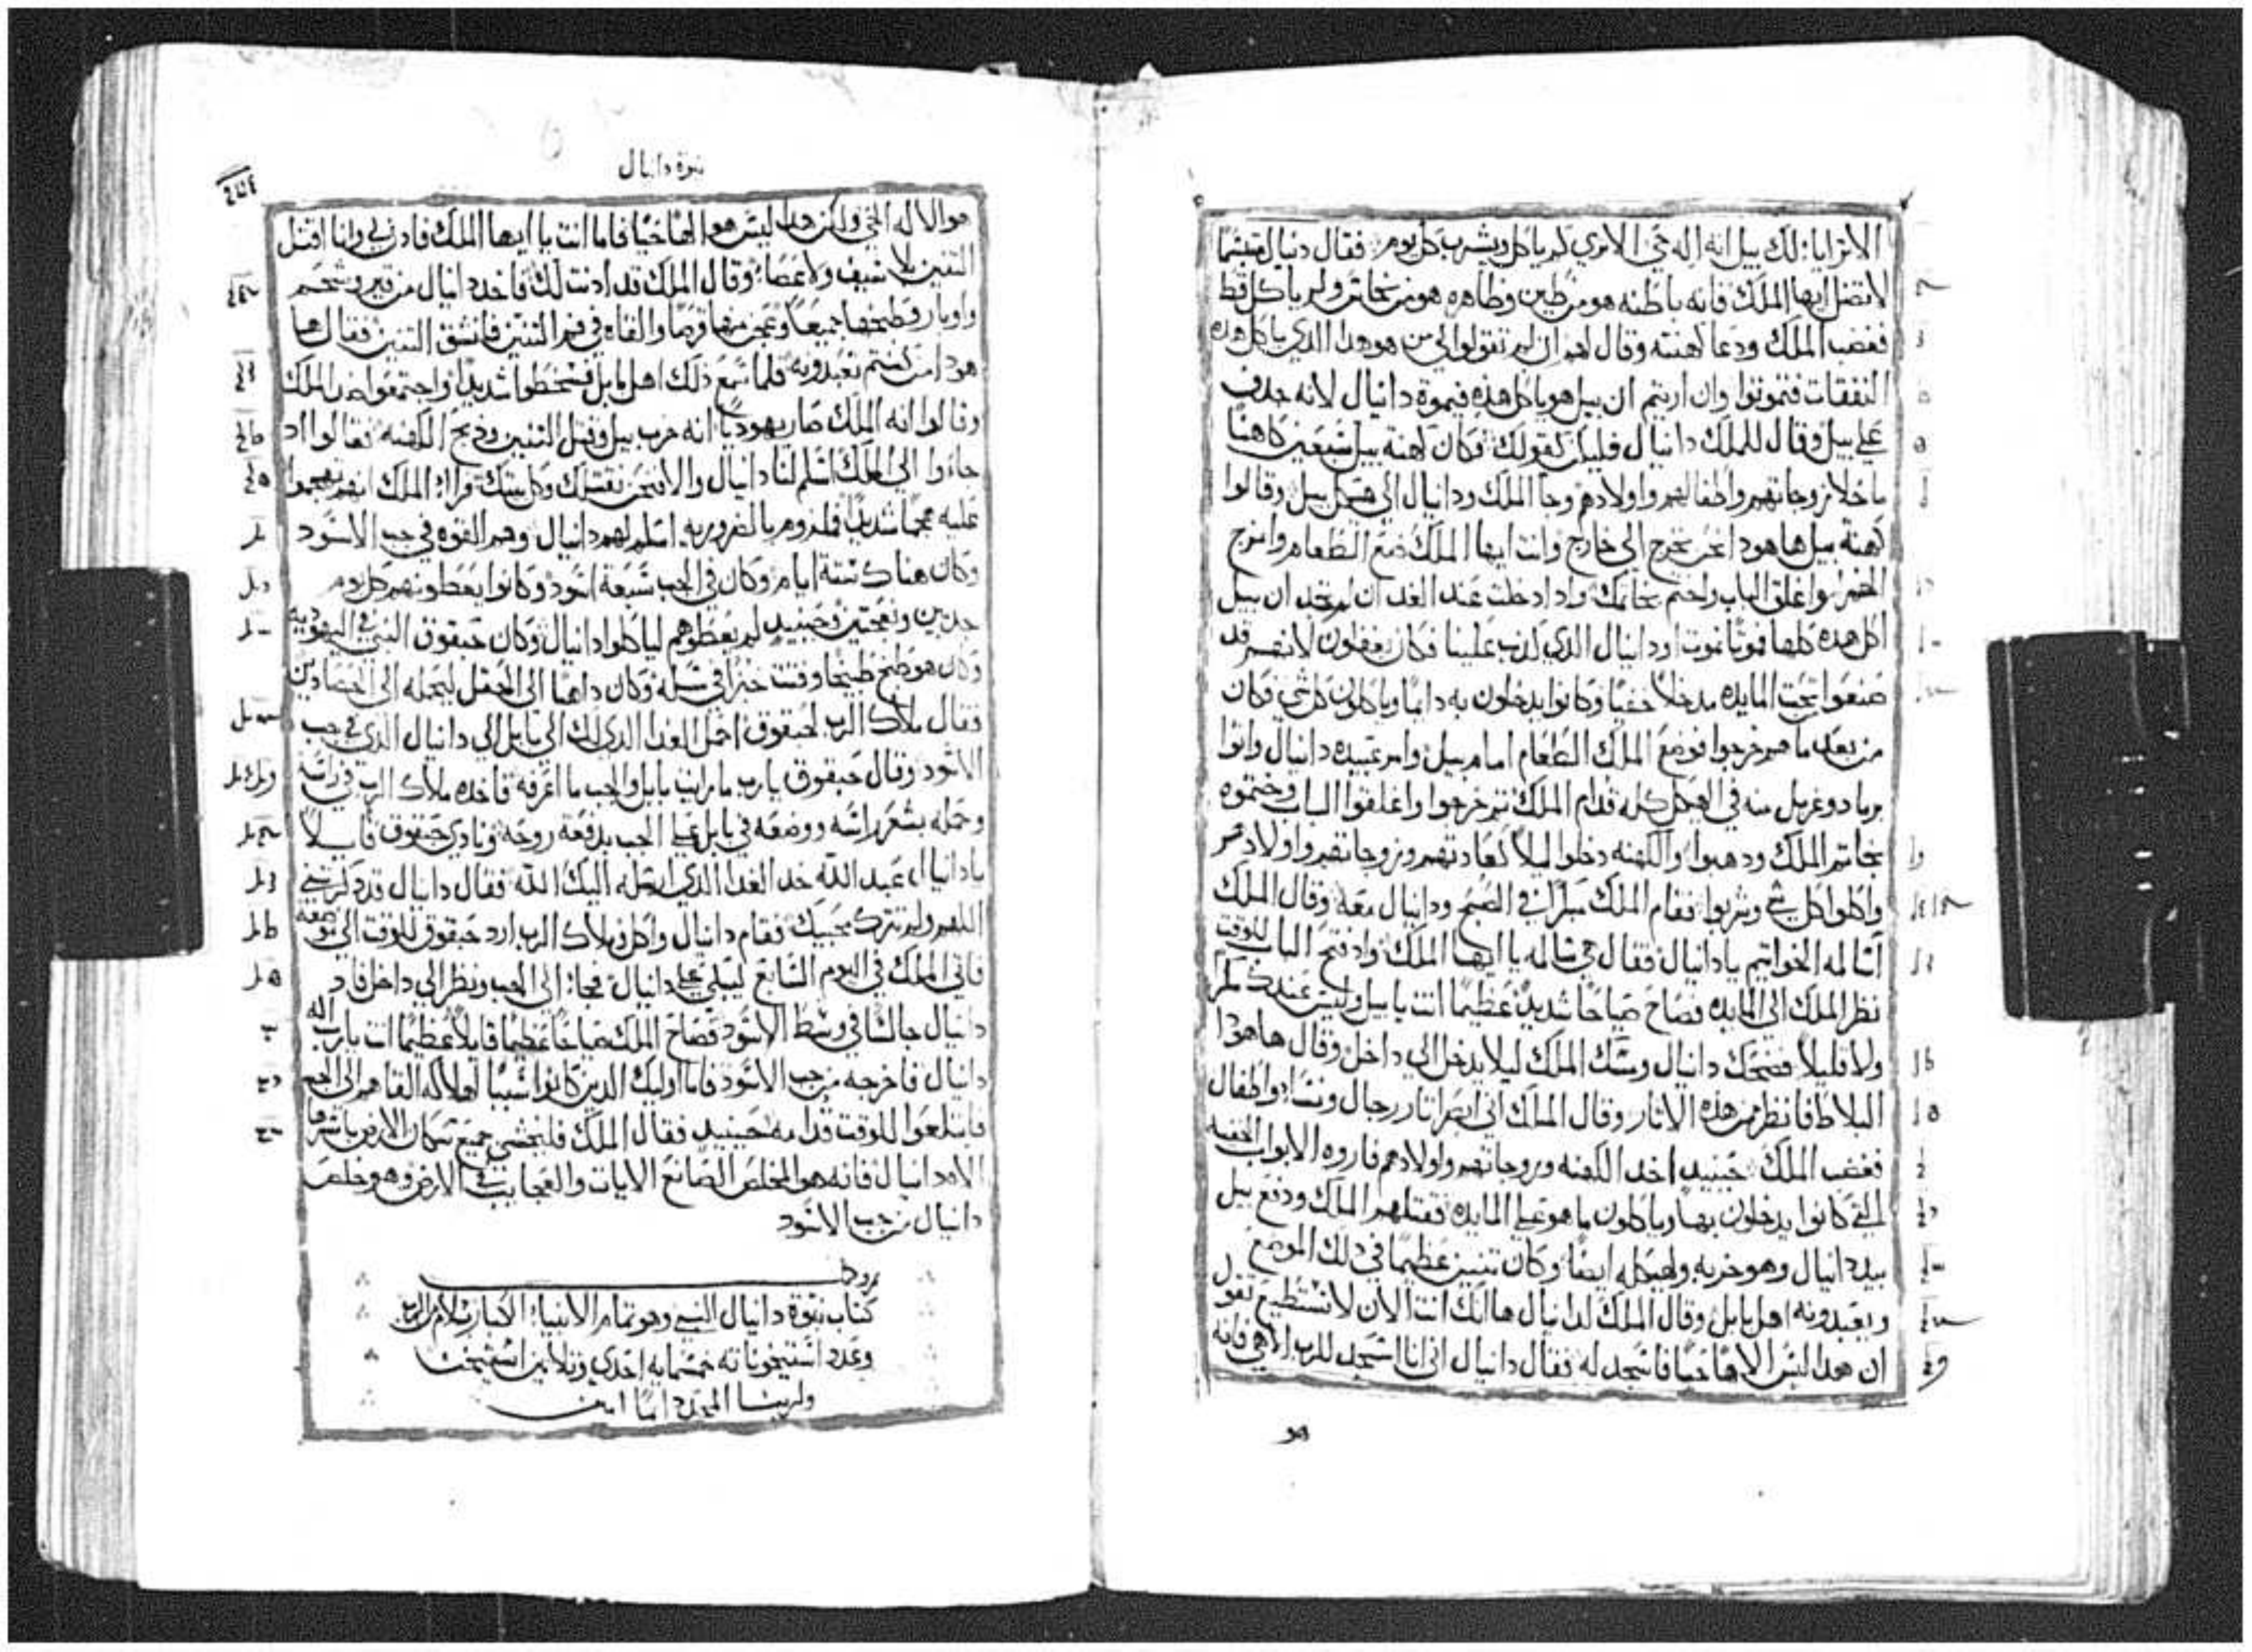 الا ترايا لك بيل انه اله حي الا تري كم ياكل ويشرب كل يوم فقال دنيال متبسما
لا تضل ايها الملك فانه باطنه هو من طين وظاهره هو من نحاس ولم ياكل قط
فغضب الملك ودعا كهنته وقال لهم ان لم تقولوا لي من هو هدا الدي ياكل هده
النفقات فتموتوا وان اريتم ان بيل هو ياكل هذه فيموة دانيال لانه جدف
علي بيل وقال للملك دانيال فليكن كقولك وكان كهنة بيل سبعين كاهنا
ما خلا زوجاتهم واطفالهم واولادهم وجا الملك ودانيال الي هيكل بيل وقالوا
كهنة بيل ها هودا نحن نخرج الي خارج وانت ايها الملك ضع الطعام وامزج
الخمر واغلق الباب واختم بخاتمك وادا دخلت عند الغد ان لم تجد ان بيل
اكل هده كلها فموتا نموت او دانيال الدي كدب علينا وكان يغفلون لانهم قد
صنعوا تحت المايده مدخلا خفيا وكانوا يدخلون به دايما وياكلون كل شي وكان
من بعد ما هم خرجوا فوضع الملك الطعام امام بيل وامر عبيده دانيال واتوا
برماد وغربل منه في الهيكل كله قدام الملك ثم خرجوا واغلقوا الباب وختموه
بخاتم الملك ودهبوا والكهنه دخلوا ليلا كعادتهم وزوجاتهم واولادهم
واكلوا كل شي وشربوا فقام الملك مبكرا في الصبح ودانيال معه وقال الملك
أسالمه الخواتيم يا دانيال فقال هي سالمه يا ايها الملك واد فتح الباب للوقت
نظر الملك الي المايده فصاح صياحا شديدا عظيما انت يا بيل وليس عندك مكر
ولا قليلا فضحك دانيال ومسك الملك ليلا يدخل الي داخل وقال ها هودا
البلاط فانظر من هذه الاثار وقال الملك اني ابصر اثار رجال ونساء واطفال
فغضب الملك حينيد اخد الكهنه وزوجاتهم واولادهم فاروه الابواب الخفيه
التي كانوا يدخلون بها وياكلون ما هو علي المايده فقتلهم الملك ودفع بيل
بيد دانيال وهو خربه ولهيكله ايضا وكان تنين عظيما في دلك الموضع
ويعبدونه اهل بابل وقال الملك لدانيال ها انك انت الان لا تستطيع تقول
ان هدا ليس الاها حيا فاسجد له فقال دانيال اني انا اسجد للرب الاهي فانه
هو
نبوة دانيال
هو الاله الحي ولكن هدا ليس هو الها حيا فاما انت يا ايها الملك فادن لي وانا اقتل
التنين بلا سيف ولا عصا وقال الملك قد ادنت لك فاخد دانيال من قير وشحم
واوبار وطبخها جميعا وعجن منها قرصا والقاه في فم التنين فانشق التنين فقال ها
هودا من كنتم تعبدونه فلما سمع ذلك اهل بابل فسخطوا شديدا واجتمعوا ضد الملك
وقالوا انه الملك صار يهوديا انه خرب بيل وقتل التنين وذبح الكهنه فقالوا اد
جاءوا الي الملك اسلم لنا دانيال والا فنحن نقتلك وكل بيتك فراء الملك انهم تهجموا
عليه هجما شديدا فلمزوم بالضروريه اسلم لهم دانيال وهم القوه في جب الاسود
وكان هناك ستة ايام وكان في الجب سبعة اسود وكانوا يعطونهم كل يوم
جديين ونعجتين وحينيد لم يعطوهم لياكلوا دانيال وكان حبقوق النبي في اليهوديه
وكان هو طبخ طبيخا وفتت خبزا في سله وكان داهبا الي الحقل ليحمله الي الحصادين
فقال ملاك الرب لحبقوق احمل الغدا الدي لك الي بابل الي دانيال الدي في جب
الاسود وقال حبقوق يا رب ما رايت بابل والجب ما اعرفه فاخده ملاك الرب في راسه
وحمله بشعر راسه ووضعه في بابل علي الجب بدفعة روحه ونادي حبقوق قايلا
يا دانيال عبد الله خد الغدا الدي ارسله اليك الله فقال دانيال قد دكرتني
اللهم ولم تترك محبيك فقام دانيال واكل وملاك الرب ارد حبقوق للوقت الي موضعه
فاتي الملك في اليوم السابع ليبكي علي دانيال فجاء الي الجب ونظر الي داخل فاد
دانيال جالسا في وسط الاسود فصاح الملك صياحا عظيما قايلا عظيما انت يا رب اله
دانيال فاخرجه من جب الاسود فاما اوليك الدين كانوا سببا لهلاكه القاهم الي الجب
فابتلعوا للوقت قدامه حينيد فقال الملك فليخشي جميع سكان الارض باسرها
الاه دانيال فانه هو المخلص الصانع الايات والعجايب في الارض وهو خلص
دانيال من جب الاسود
كتاب نبوة دانيال النبي وهو تمام الانبياء الكبار بسلام الرب
وعدد استيخوناته خمسمايه احدي وثلاثين استيخن
ولربنا المجد دايما امين